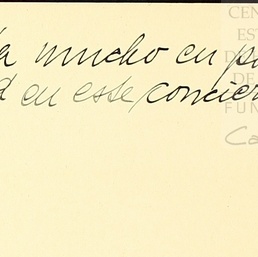 a mucho en p
d en este concier
CEN
ES
D
DE
FUN
Ca